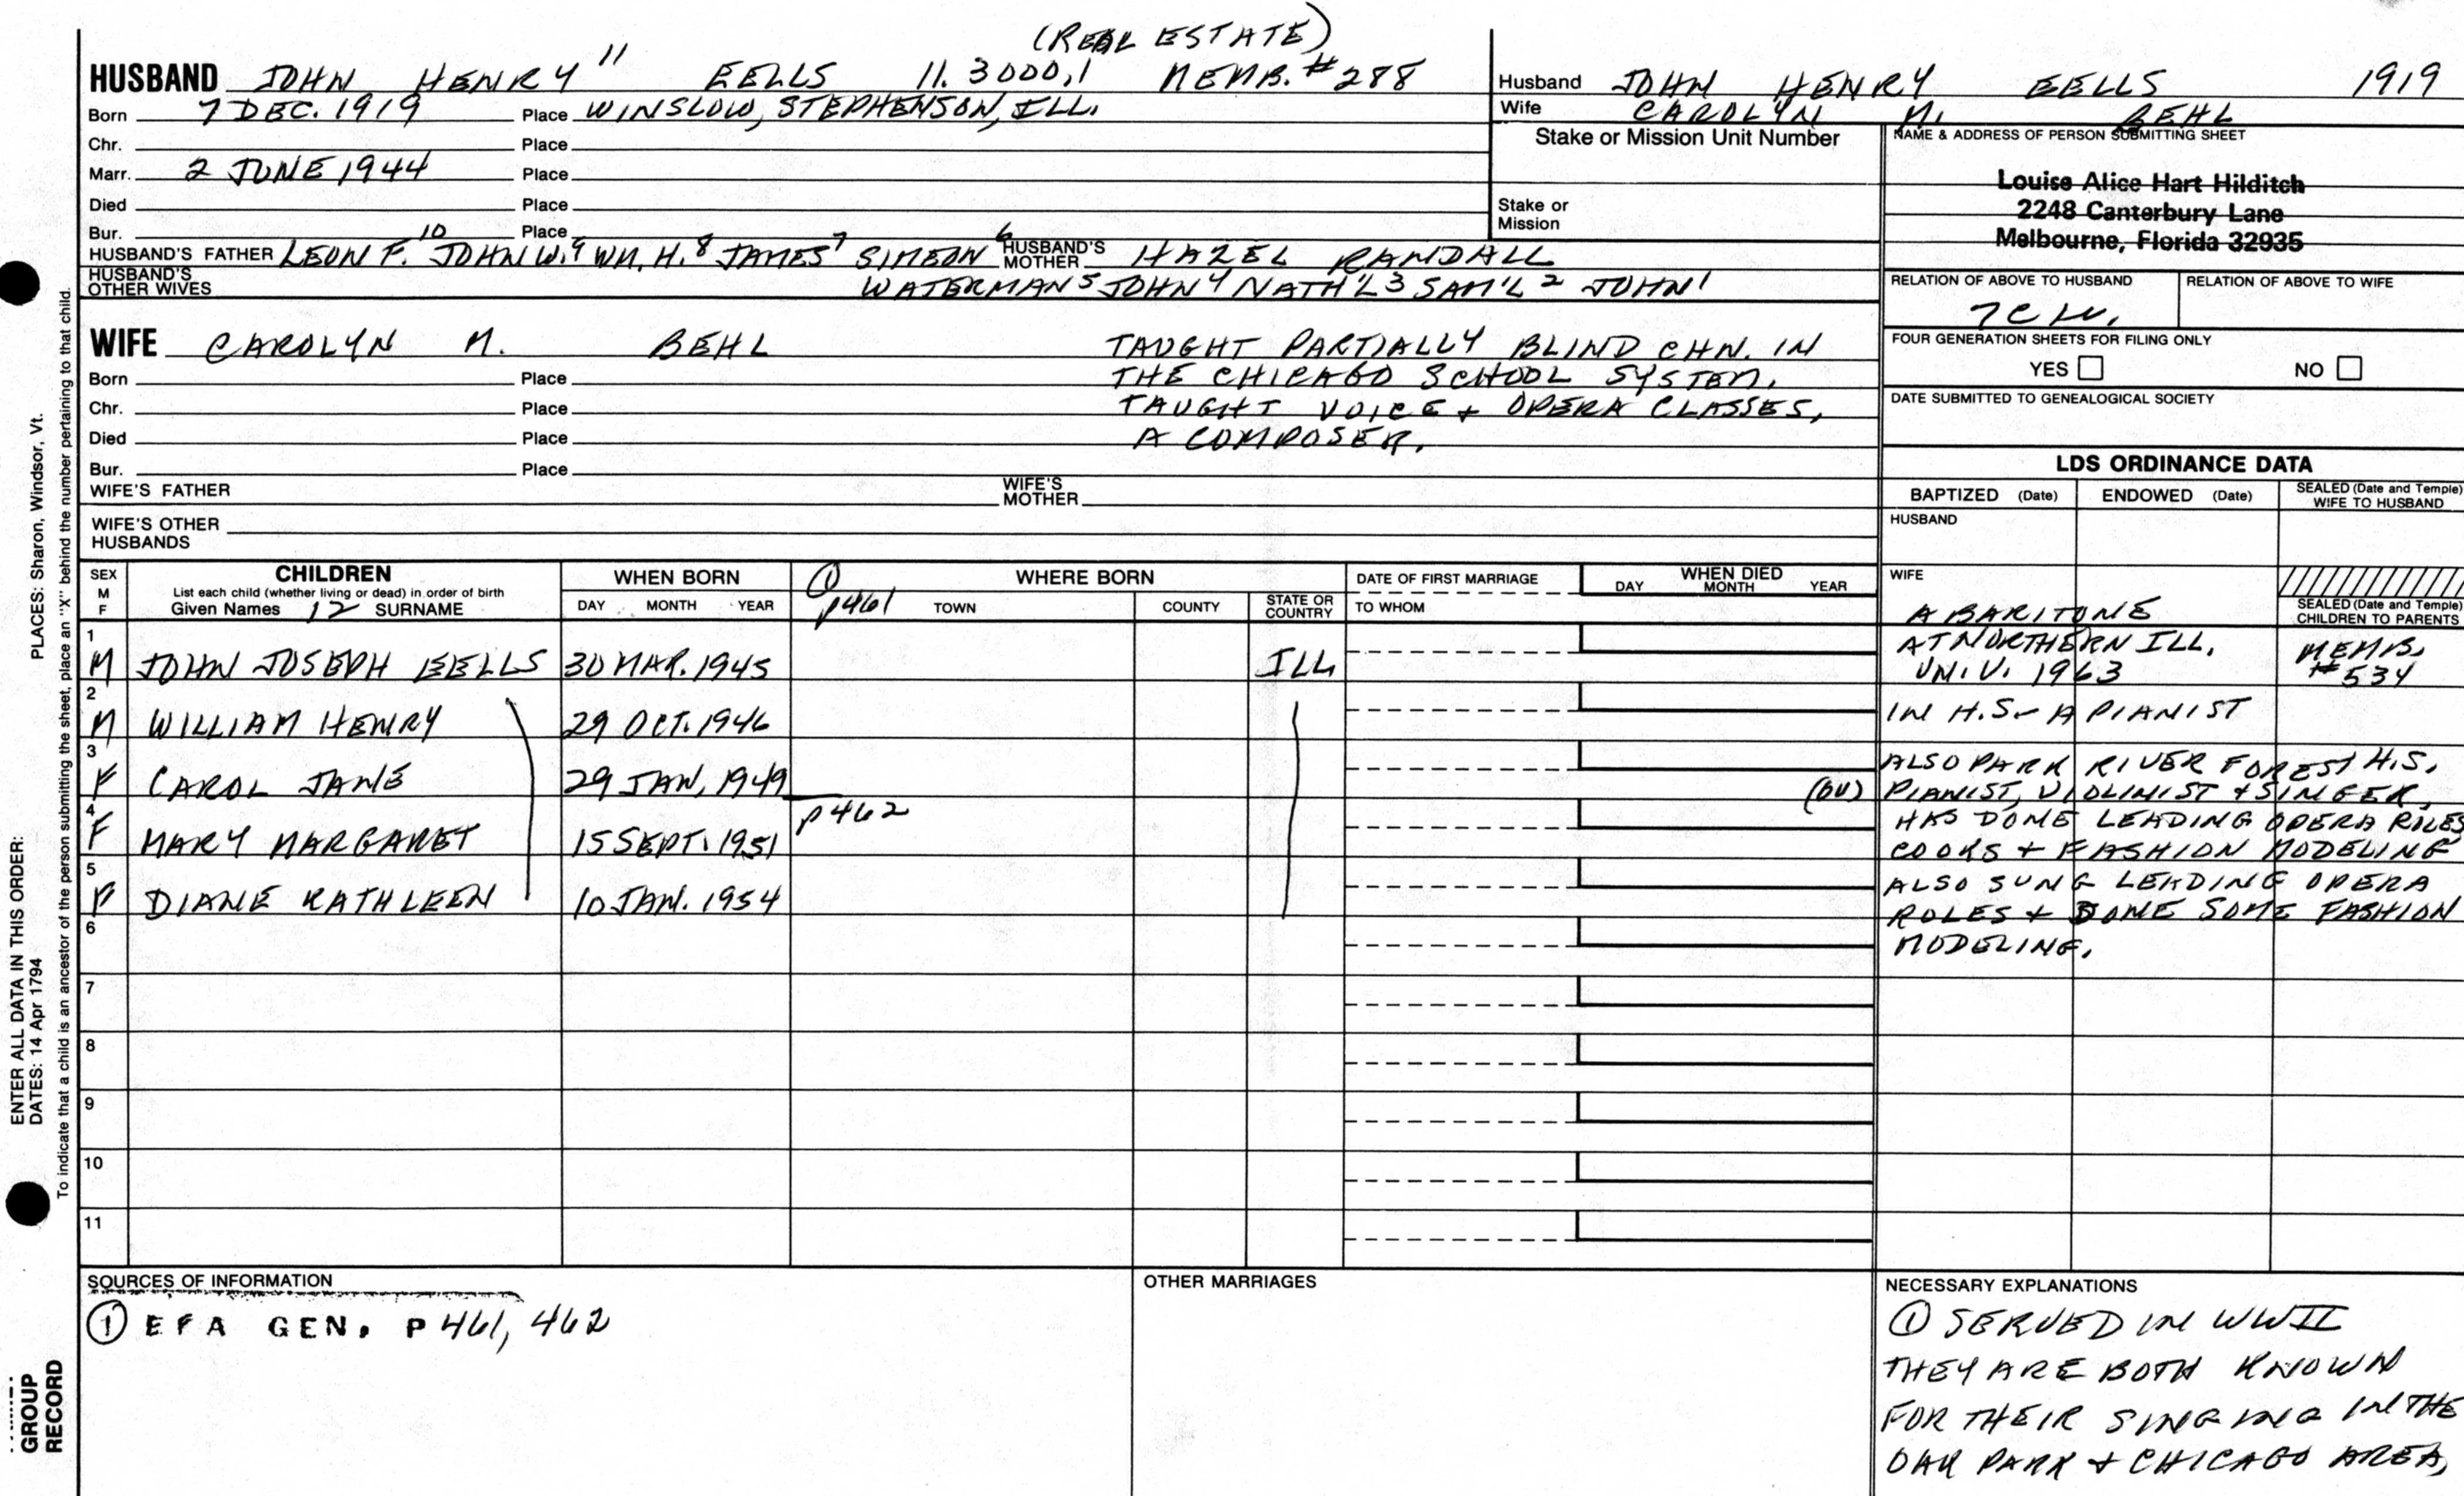 (REAL ESTATE)
HUSBAND JOHN HENRY 11 EELLS 11.3000,1 MEMB. #288
Born 7 DEC. 1919 Place WINSLOW, STEPHENSON, ILL.
Chr. Place
Marr. 2 JUNE 1944 Place
Died Place
Bur. Place
HUSBAND'S FATHER LEON F. 10 JOHN W. 9 WM. H. 8 JAMES 7 SIMEON 6 HUSBAND'S MOTHER HAZEL RANDALL
HUSBAND'S OTHER WIVES WATERMAN 5 JOHN 4 NATH'L 3 SAM'L 2 JOHN 1
WIFE CAROLYN M. BEHL
TAUGHT PARTIALLY BLIND CHN. IN
THE CHICAGO SCHOOL SYSTEM.
TAUGHT VOICE + OPERA CLASSES,
A COMPOSER.
Born Place
Chr. Place
Died Place
Bur. Place
WIFE'S FATHER WIFE'S MOTHER
WIFE'S OTHER HUSBANDS
Husband JOHN HENRY EELLS 1919
Wife CAROLYN M. BEHL
Stake or Mission Unit Number
Stake or Mission
NAME & ADDRESS OF PERSON SUBMITTING SHEET
Louise Alice Hart Hilditch
2248 Canterbury Lane
Melbourne, Florida 32935
RELATION OF ABOVE TO HUSBAND RELATION OF ABOVE TO WIFE
7C
FOUR GENERATION SHEETS FOR FILING ONLY
YES NO
DATE SUBMITTED TO GENEALOGICAL SOCIETY
LDS ORDINANCE DATA
BAPTIZED (Date) ENDOWED (Date) SEALED (Date and Temple) WIFE TO HUSBAND
HUSBAND
WIFE
SEALED (Date and Temple) CHILDREN TO PARENTS
SEX M F
CHILDREN
List each child (whether living or dead) in order of birth
Given Names 12 SURNAME
WHEN BORN
DAY MONTH YEAR
① P461
WHERE BORN
TOWN COUNTY STATE OR COUNTRY
DATE OF FIRST MARRIAGE
TO WHOM
WHEN DIED
DAY MONTH YEAR
1 M JOHN JOSEPH EELLS 30 MAR. 1945 ILL
2 M WILLIAM HENRY 29 OCT. 1946
3 F CAROL JANE 29 JAN. 1949
P462
4 F MARY MARGARET 15 SEPT. 1951
5 F DIANE KATHLEEN 10 JAN. 1954
6
7
8
9
10
11
A BARITONE
AT NORTHERN ILL.
UNIV. 1963
MEMB. #534
IN H.S. - A PIANIST
ALSO PARK RIVER FOREST H.S.
PIANIST, VIOLINIST + SINGER.
HAS DONE LEADING OPERA ROLES
COOKS + FASHION MODELING
ALSO SUNG LEADING OPERA
ROLES + DONE SOME FASHION
MODELING.
SOURCES OF INFORMATION
① EFA GEN. P461, 462
OTHER MARRIAGES
NECESSARY EXPLANATIONS
① SERVED IN WWII
THEY ARE BOTH KNOWN
FOR THEIR SINGING IN THE
OAK PARK + CHICAGO AREA,
ENTER ALL DATA IN THIS ORDER: PLACES: Sharon, Windsor, Vt.
DATES: 14 Apr 1794
To indicate that a child is an ancestor of the person submitting the sheet, place an "X" behind the number pertaining to that child.
GROUP
RECORD